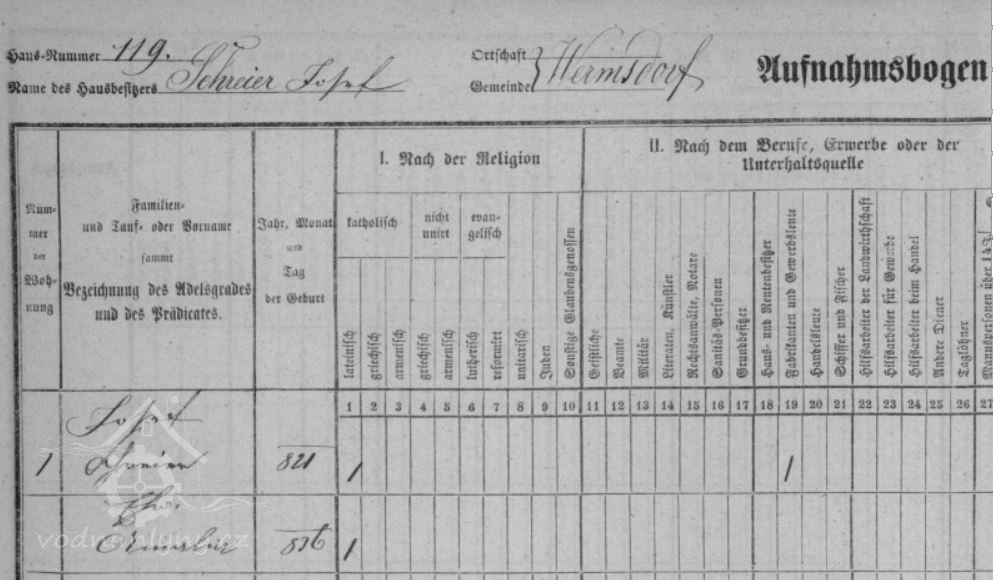 Haus-Nummer 119.
Name des Hausbesitzers Schreier Josef
Ortschaft
Gemeinde } Wermsdorf
Aufnahmsbogen
Num-
mer
der
Woh-
nung
Familien-
und Tauf- oder Vorname
sammt
Bezeichnung des Adelsgrades
und des Prädicates.
Jahr, Monat
und
Tag
der Geburt
I. Nach der Religion
katholisch
nicht
unirt
evan-
gelisch
lateinisch
griechisch
armenisch
griechisch
armenisch
lutherisch
reformirt
unitarisch
Juden
Sonstige Glaubensgenossen
II. Nach dem Berufe, Erwerbe oder der
Unterhaltsquelle
Geistliche
Beamte
Militär
Literaten, Künstler
Rechtsanwälte, Notare
Sanitäs-Personen
Grundbesitzer
Haus- und Rentenbesitzer
Fabrikanten und Gewerbsleute
Handelsleute
Schiffer und Fischer
Hilfsarbeiter der Landwirthschaft
Hilfsarbeiter für Gewerbe
Hilfsarbeiter beim Handel
Andere Diener
Taglöhner
Mannspersonen über 14
1 2 3 4 5 6 7 8 9 10 11 12 13 14 15 16 17 18 19 20 21 22 23 24 25 26 27
Josef
1 Schreier 821 1 1
Amalia 836 1
vodnimlyny.cz